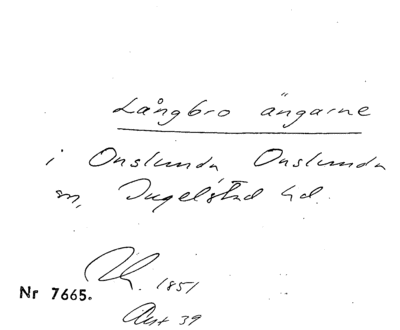 Långbro ängarne
i Onslunda Onslunda
sn, Ingelstad hd.
1851
Nr 7665.
39